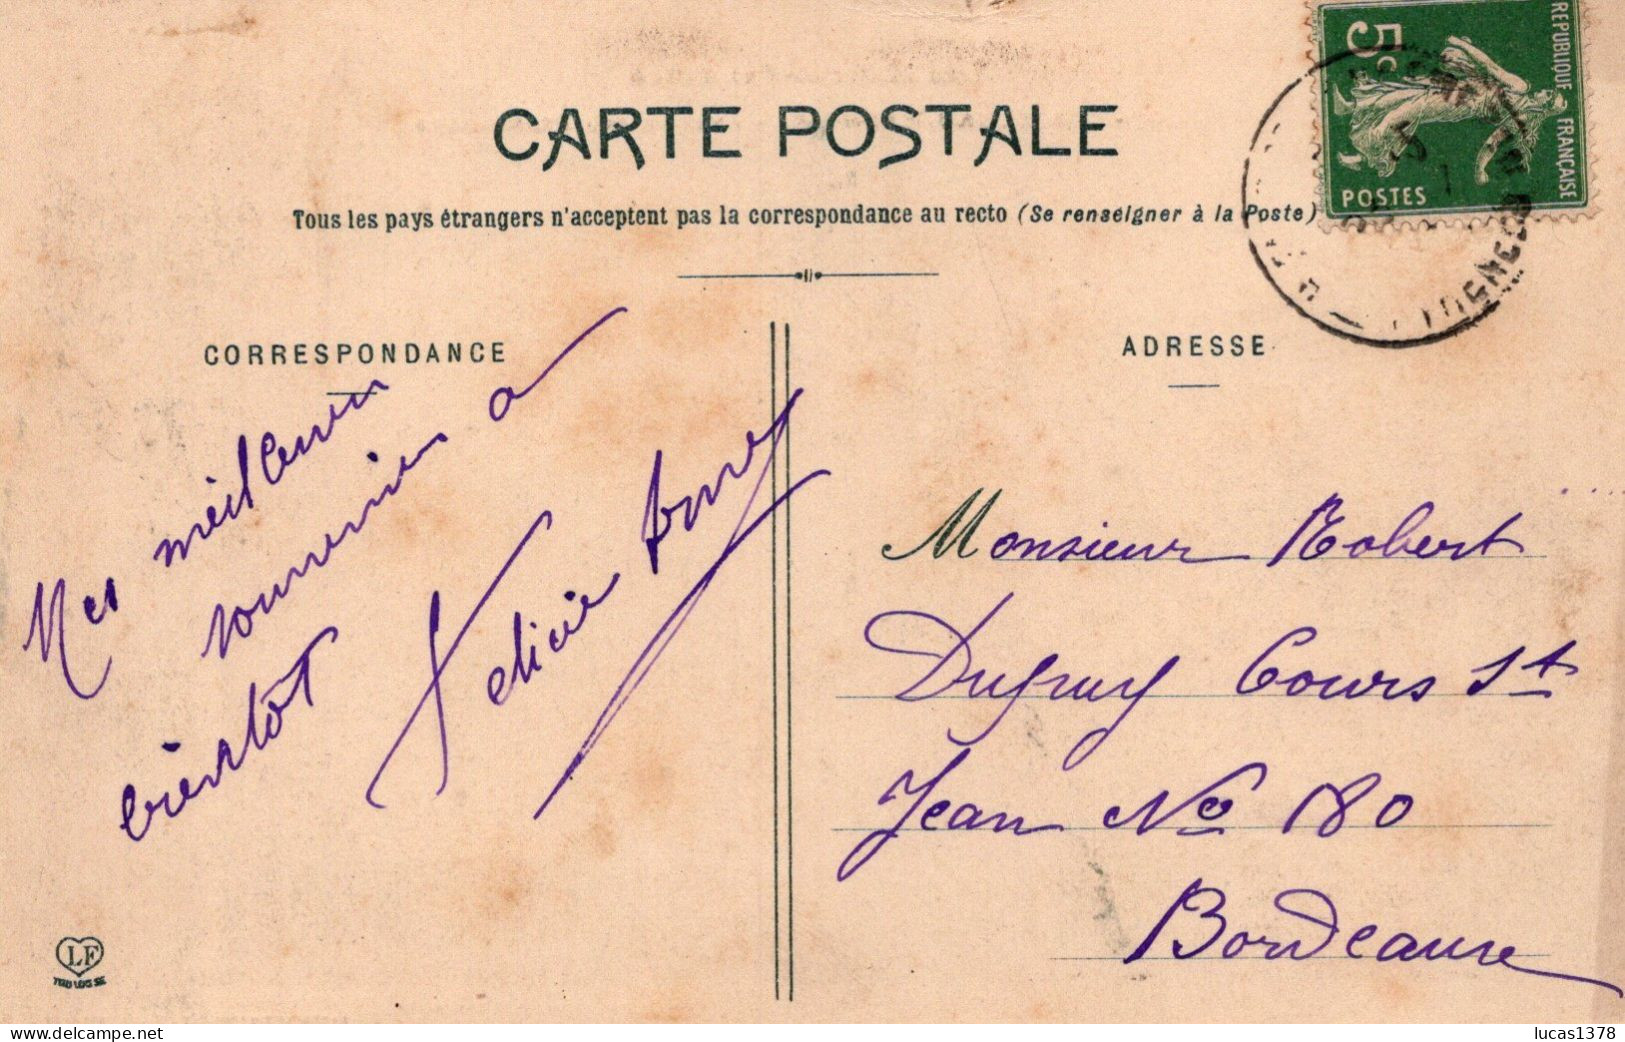 CARTE POSTALE
Tous les pays étrangers n'acceptent pas la correspondance au recto (Se renseigner à la Poste)
5c
REPUBLIQUE FRANÇAISE
POSTES
CORRESPONDANCE
Mes meilleurs
souvenirs a
bientôt
Felicie
ADRESSE
Monsieur Robert
Dupuy Cours St
Jean No 180
Bordeaux
LF
TOULOUSE
lucas1378